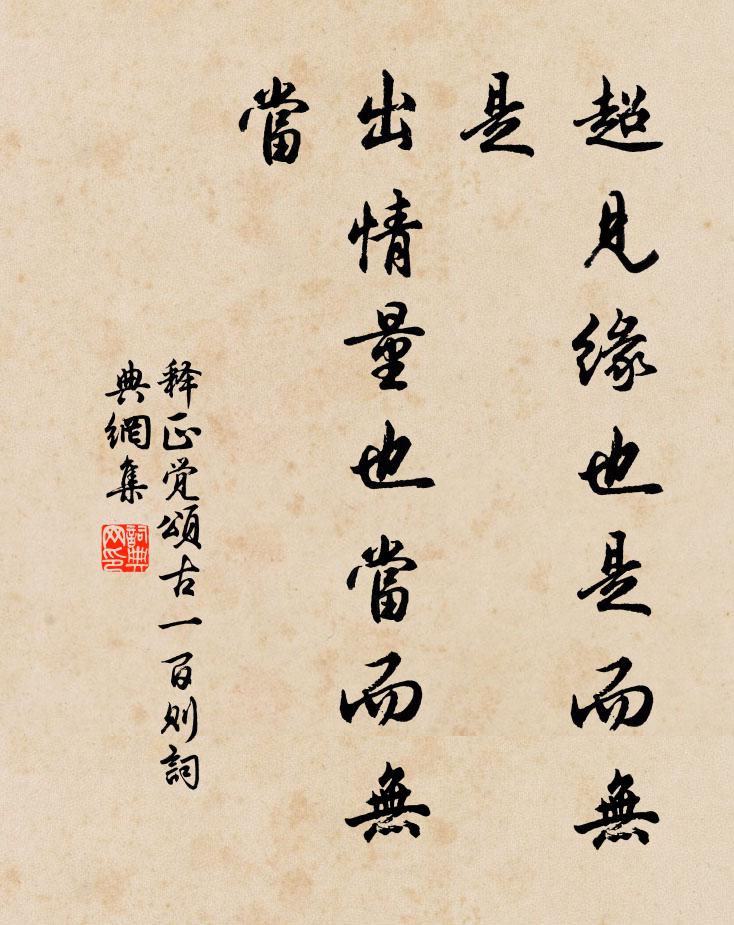 超見緣也是而無
是
出情量也當而無
當
释正觉頌古一百则詞
典網集
詞典
网印